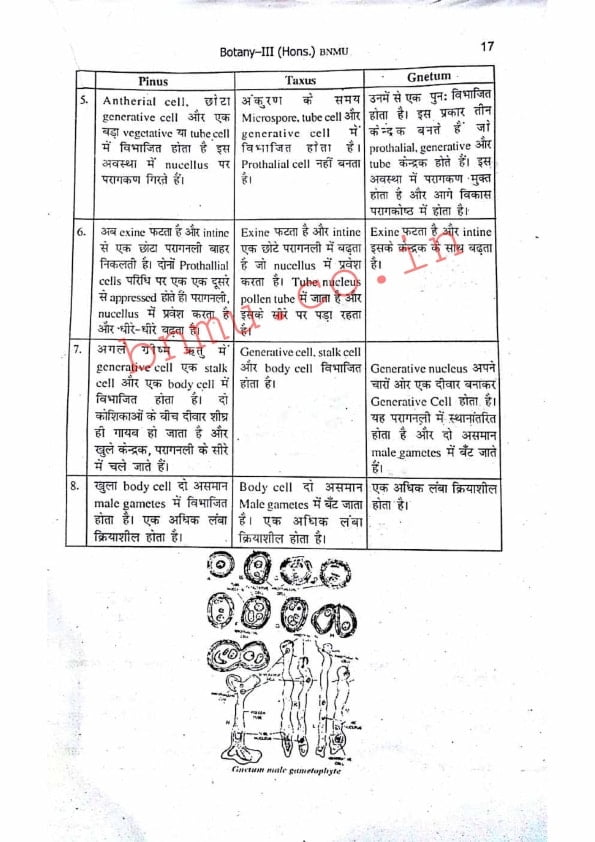 Botany–III (Hons.) BNMU
17
Pinus
Taxus
Gnetum
5.
Antherial cell, छोटा
generative cell और एक
बड़ा vegetative या tube cell
में विभाजित होता है इस
अवस्था में nucellus पर
परागकण गिरते हैं।
अंकुरण के समय
Microspore, tube cell और
generative cell में
विभाजित होता है।
Prothalial cell नहीं बनता
है।
उनमें से एक पुनः विभाजित
होता है। इस प्रकार तीन
केन्द्रक बनते हैं जो
prothalial, generative और
tube केन्द्रक होते हैं। इस
अवस्था में परागकण मुक्त
होता है और आगे विकास
परागकोष्ठ में होता है।
6.
अब exine फटता है और intine
से एक छोटा परागनली बाहर
निकलती है। दोनों Prothallial
cells परिधि पर एक एक दूसरे
से appressed होते हैं। परागनली,
nucellus में प्रवेश करता है
और धीरे-धीरे बढ़ता है।
Exine फटता है और intine
एक छोटे परागनली में बढ़ता
है जो nucellus में प्रवेश
करता है। Tube nucleus
pollen tube में जाता है और
इसके सीरे पर पड़ा रहता
है।
Exine फटता है और intine
इसके केन्द्रक के साथ बढ़ता
है।
7.
अगले ग्रीष्म ऋतु में
generative cell एक stalk
cell और एक body cell में
विभाजित होता है। दो
कोशिकाओं के बीच दीवार शीघ्र
ही गायब हो जाता है और
खुले केन्द्रक, परागनली के सीरे
में चले जाते हैं।
Generative cell, stalk cell
और body cell विभाजित
होता है।
Generative nucleus अपने
चारों ओर एक दीवार बनाकर
Generative Cell होता है।
यह परागनली में स्थानांतरित
होता है और दो असमान
male gametes में बँट जाते
हैं।
8.
खुला body cell दो असमान
male gametes में विभाजित
होता है। एक अधिक लंबा
क्रियाशील होता है।
Body cell दो असमान
Male gametes में बँट जाता
है। एक अधिक लंबा
क्रियाशील होता है।
एक अधिक लंबा क्रियाशील
होता है।
bnmu.co.in
Gnetum male gametophyte